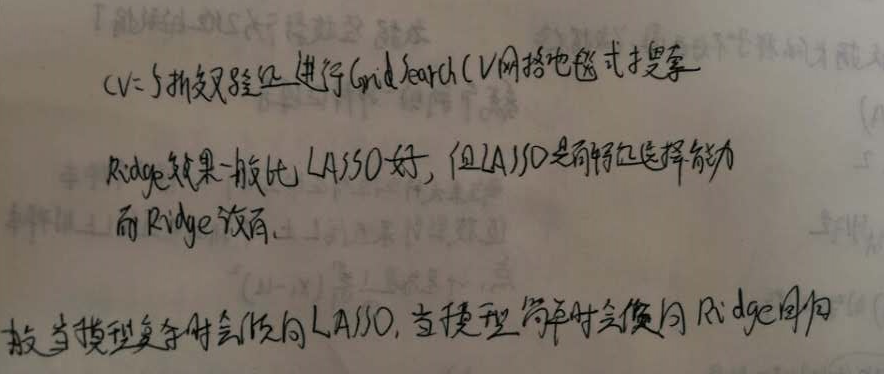 CV=5折交叉验证 进行GridSearchCV网格地毯式搜索
Ridge效果一般比LASSO好, 但LASSO是有特征选择能力
而Ridge没有、
故当模型复杂时会倾向LASSO, 当模型简单时会倾向Ridge回归